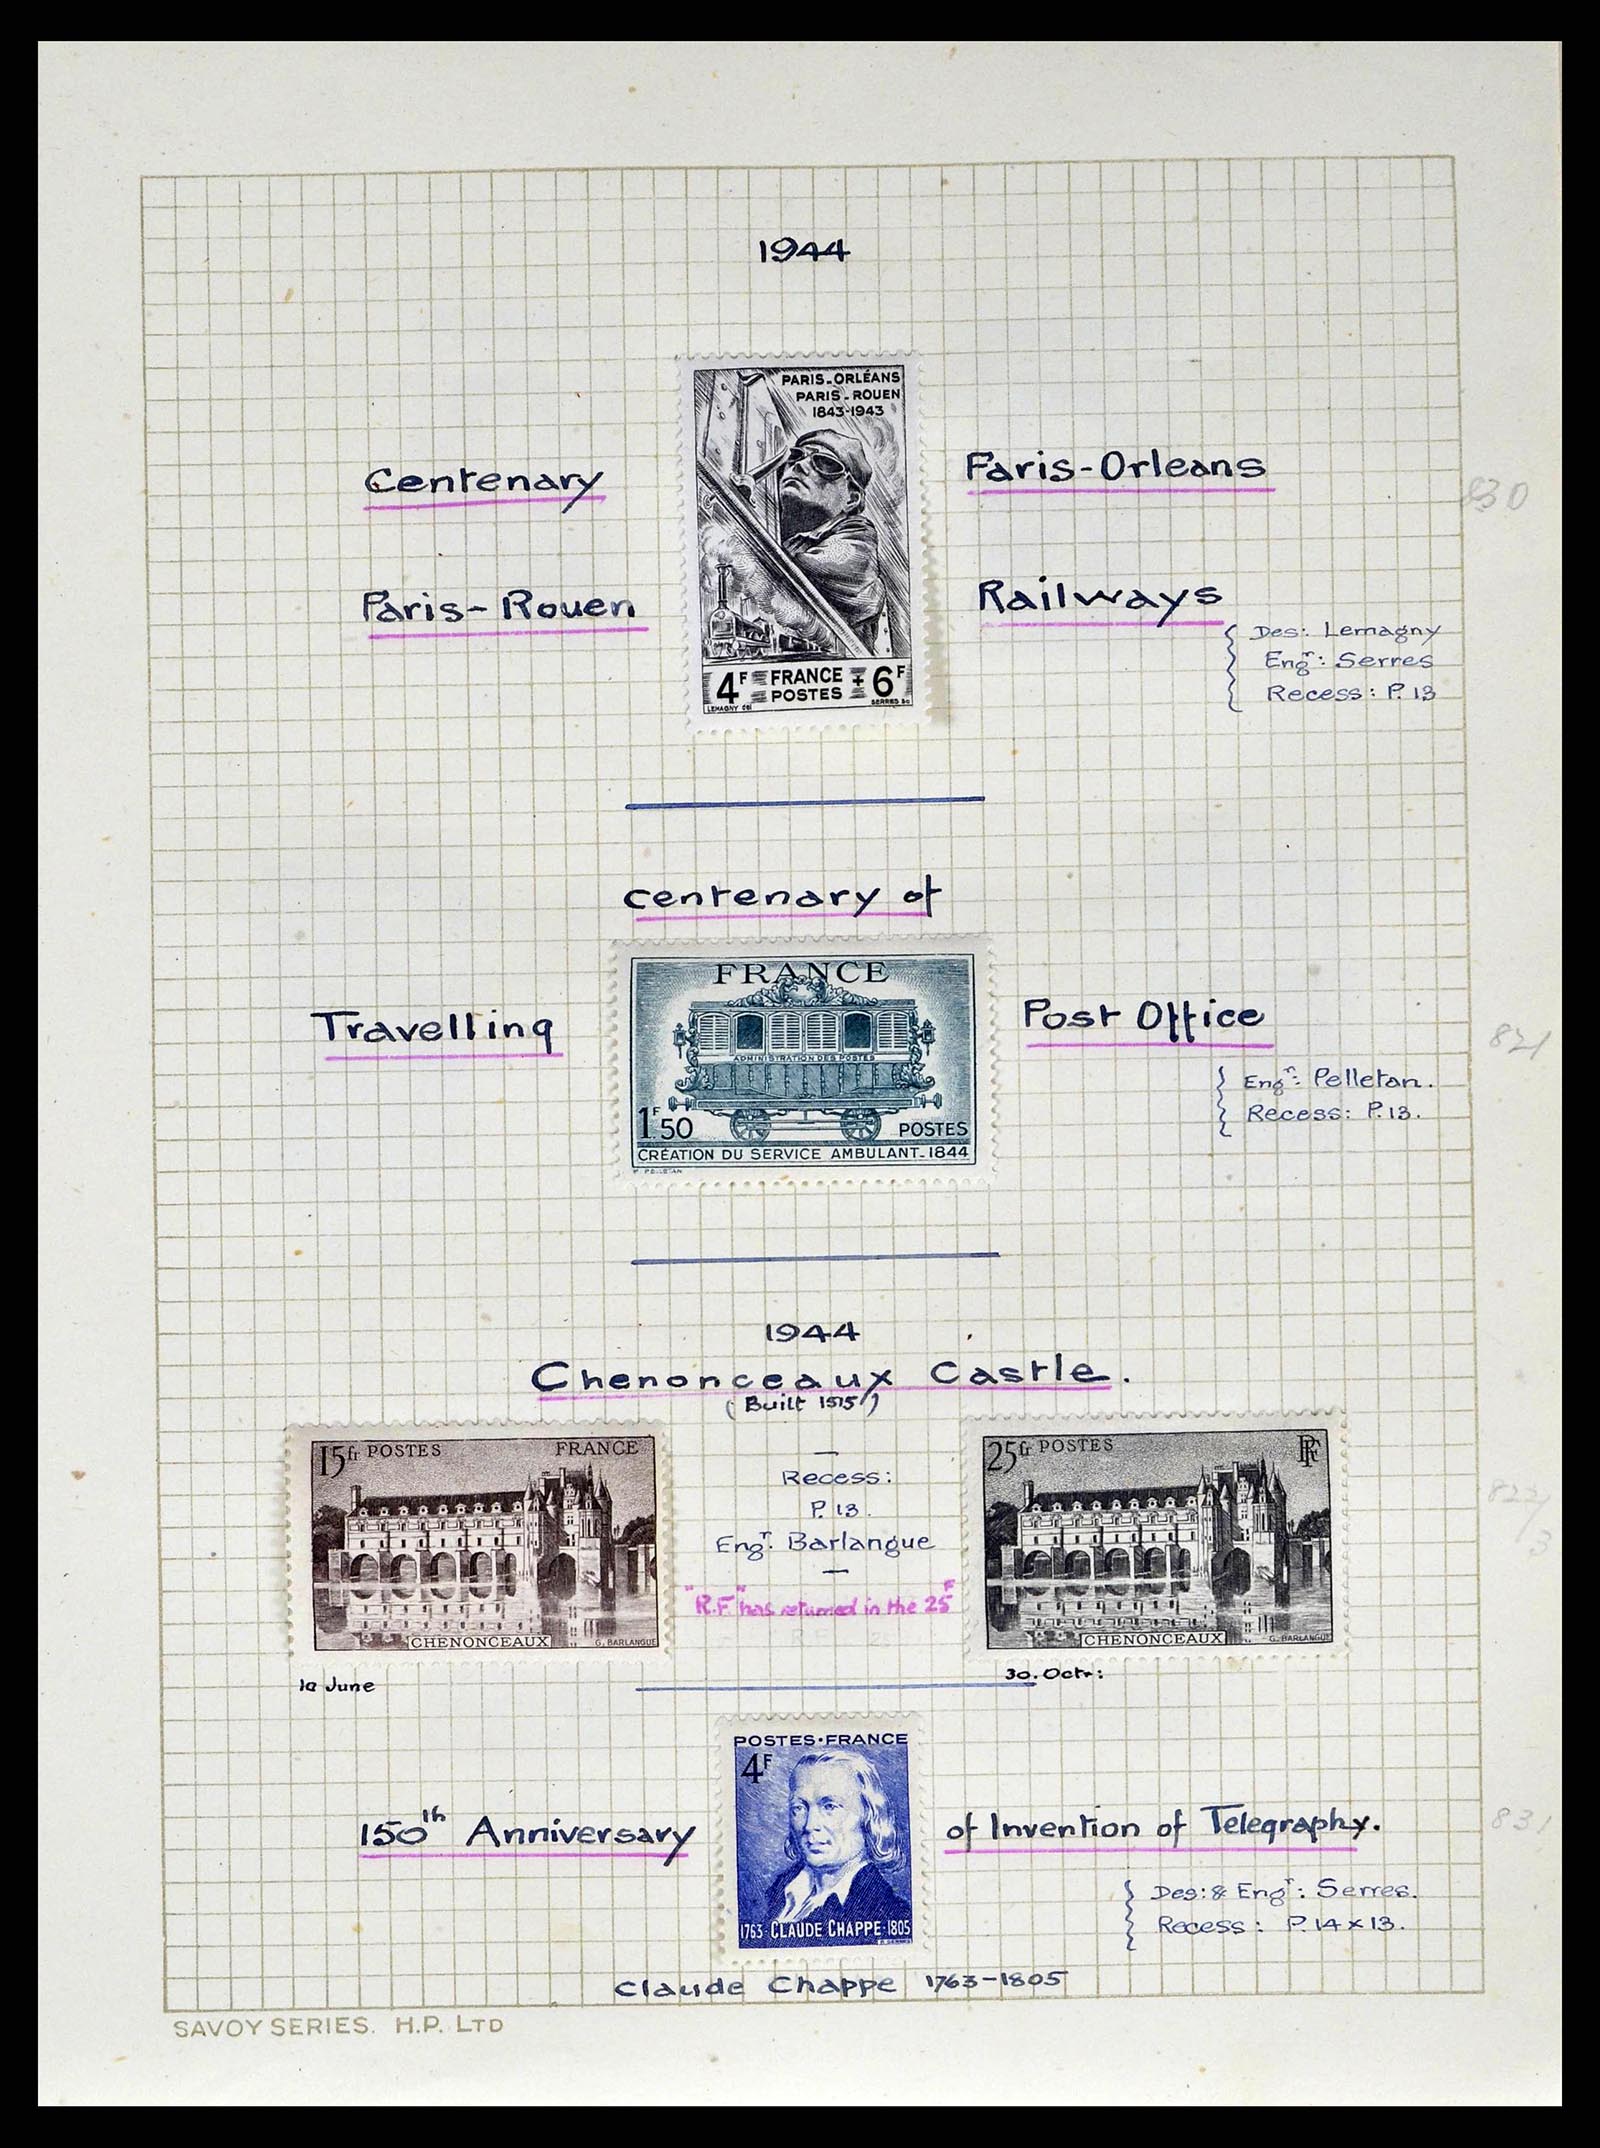 1944
PARIS-ORLÉANS
PARIS-ROUEN
1843-1943
Centenary
Paris-Orleans
830
Paris-Rouen
Railways
Des: Lemagny
Engr: Serres
Recess: P.13
4F FRANCE + 6F
POSTES
LEMAGNY del SERRES sc
Centenary of
FRANCE
ADMINISTRATION DES POSTES
1F.50 POSTES
CRÉATION DU SERVICE AMBULANT-1844
P. PELLETAN
Travelling
Post Office
821
Engr: Pelletan.
Recess: P.13.
1944
Chenonceaux Castle.
(Built 1515)
15fr POSTES FRANCE
CHENONCEAUX
G. BARLANGUE
Recess:
P.13.
Engr: Barlangue
"R.F" has returned in the 25F
25fr POSTES RF
CHENONCEAUX
G. BARLANGUE
822/3
June
30. Octr:
POSTES·FRANCE
4F
1763·CLAUDE CHAPPE·1805
150th Anniversary
of Invention of Telegraphy.
831
Des: & Engr: Serres.
Recess: P.14x13.
Claude Chappe 1763-1805
SAVOY SERIES. H.P. LTD